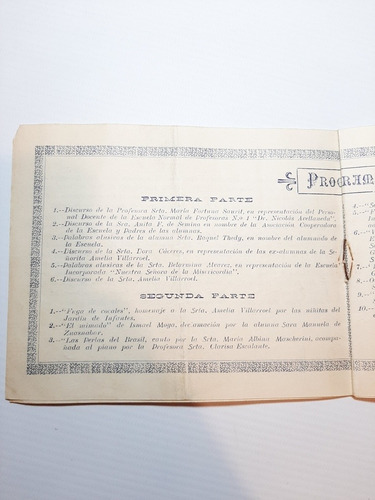 PRIMERA PARTE
1.--Discurso de la Profesora Srta. María Fortuna Saurit, en representación del Perso-
nal Docente de la Escuela Normal de Profesoras N.o 1 "Dr. Nicolás Avellaneda".
2.--Discurso de la Sra. Anita F. de Semino en nombre de la Asociación Cooperadora
de la Escuela y Padres de las alumnas.
3.--Palabras alusivas de la alumna Srta. Raquel Thedy, en nombre del alumnado de
la Escuela.
4.--Discurso de la Srta. Dora Cáceres, en representación de las ex-alumnas de la Se-
ñorita Amelia Villarroel.
5.--Palabras alusivas de la Srta. Belermina Alvarez, en representación de la Escuela
Incorporada "Nuestra Señora de la Misericordia".
6.--Discurso de la Srta. Amelia Villarroel.
SEGUNDA PARTE
1.--"Fuga de corales", homenaje a la Srta. Amelia Villarroel por las niñitas del
Jardín de Infantes.
2.--"El nimondo" de Ismael Moya, declamación por la alumna Sara Manuela de
Zuasnabar.
3.--"Las Perlas del Brasil, canto por la Srta. María Albina Mascherini, acompa-
ñada al piano por la Profesora Srta. Clarisa Escalante.
PROGRAM
4.--
5.--
6.--
7.--
8.--
9.--
10.--